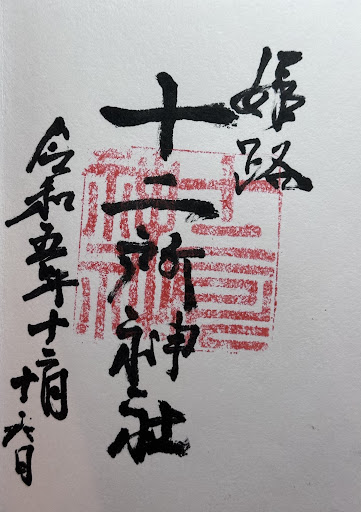 姫路
十二所神社
令和五年十二月
十六日